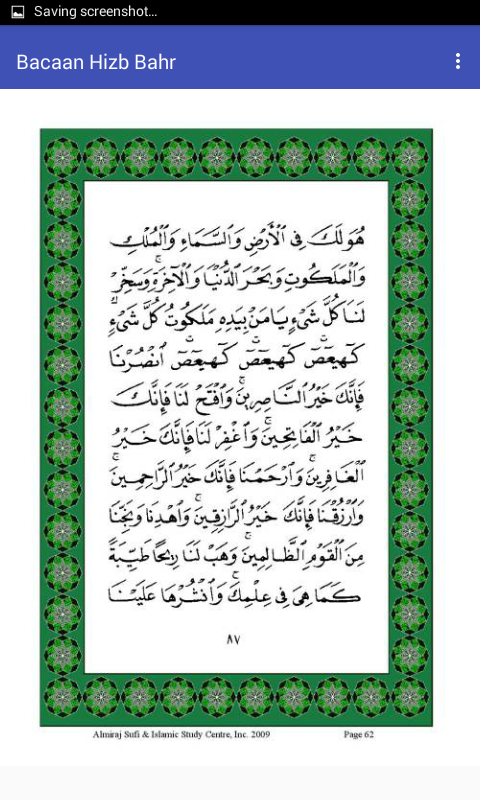 Saving screenshot...
Bacaan Hizb Bahr
هُوَ لَكَ فِى الْأَرْضِ وَالسَّمَاءِ وَالْمُلْكِ
وَالْمَلَكُوتِ وَبَحْرَ الدُّنْيَا وَالْآخِرَةِ ۚ وَسَخِّرْ
لَنَا كُلَّ شَىْءٍ يَا مَنْ بِيَدِهِ مَلَكُوتُ كُلِّ شَىْءٍ ۚ
كٓهٰيٰعٓصٓ كٓهٰيٰعٓصٓ كٓهٰيٰعٓصٓ انْصُرْنَا
فَإِنَّكَ خَيْرُ النَّاصِرِينَ ۚ وَافْتَحْ لَنَا فَإِنَّكَ
خَيْرُ الْفَاتِحِينَ ۚ وَاغْفِرْ لَنَا فَإِنَّكَ خَيْرُ
الْغَافِرِينَ ۚ وَارْحَمْنَا فَإِنَّكَ خَيْرُ الرَّاحِمِينَ ۚ
وَارْزُقْنَا فَإِنَّكَ خَيْرُ الرَّازِقِينَ ۚ وَاهْدِنَا وَنَجِّنَا
مِنَ الْقَوْمِ الظَّالِمِينَ ۚ وَهَبْ لَنَا رِيْحًا طَيِّبَةً
كَمَا هِىَ فِى عِلْمِكَ ۚ وَانْشُرْهَا عَلَيْنَا
٨٧
Almiraj Sufi & Islamic Study Centre, Inc. 2009 Page 62